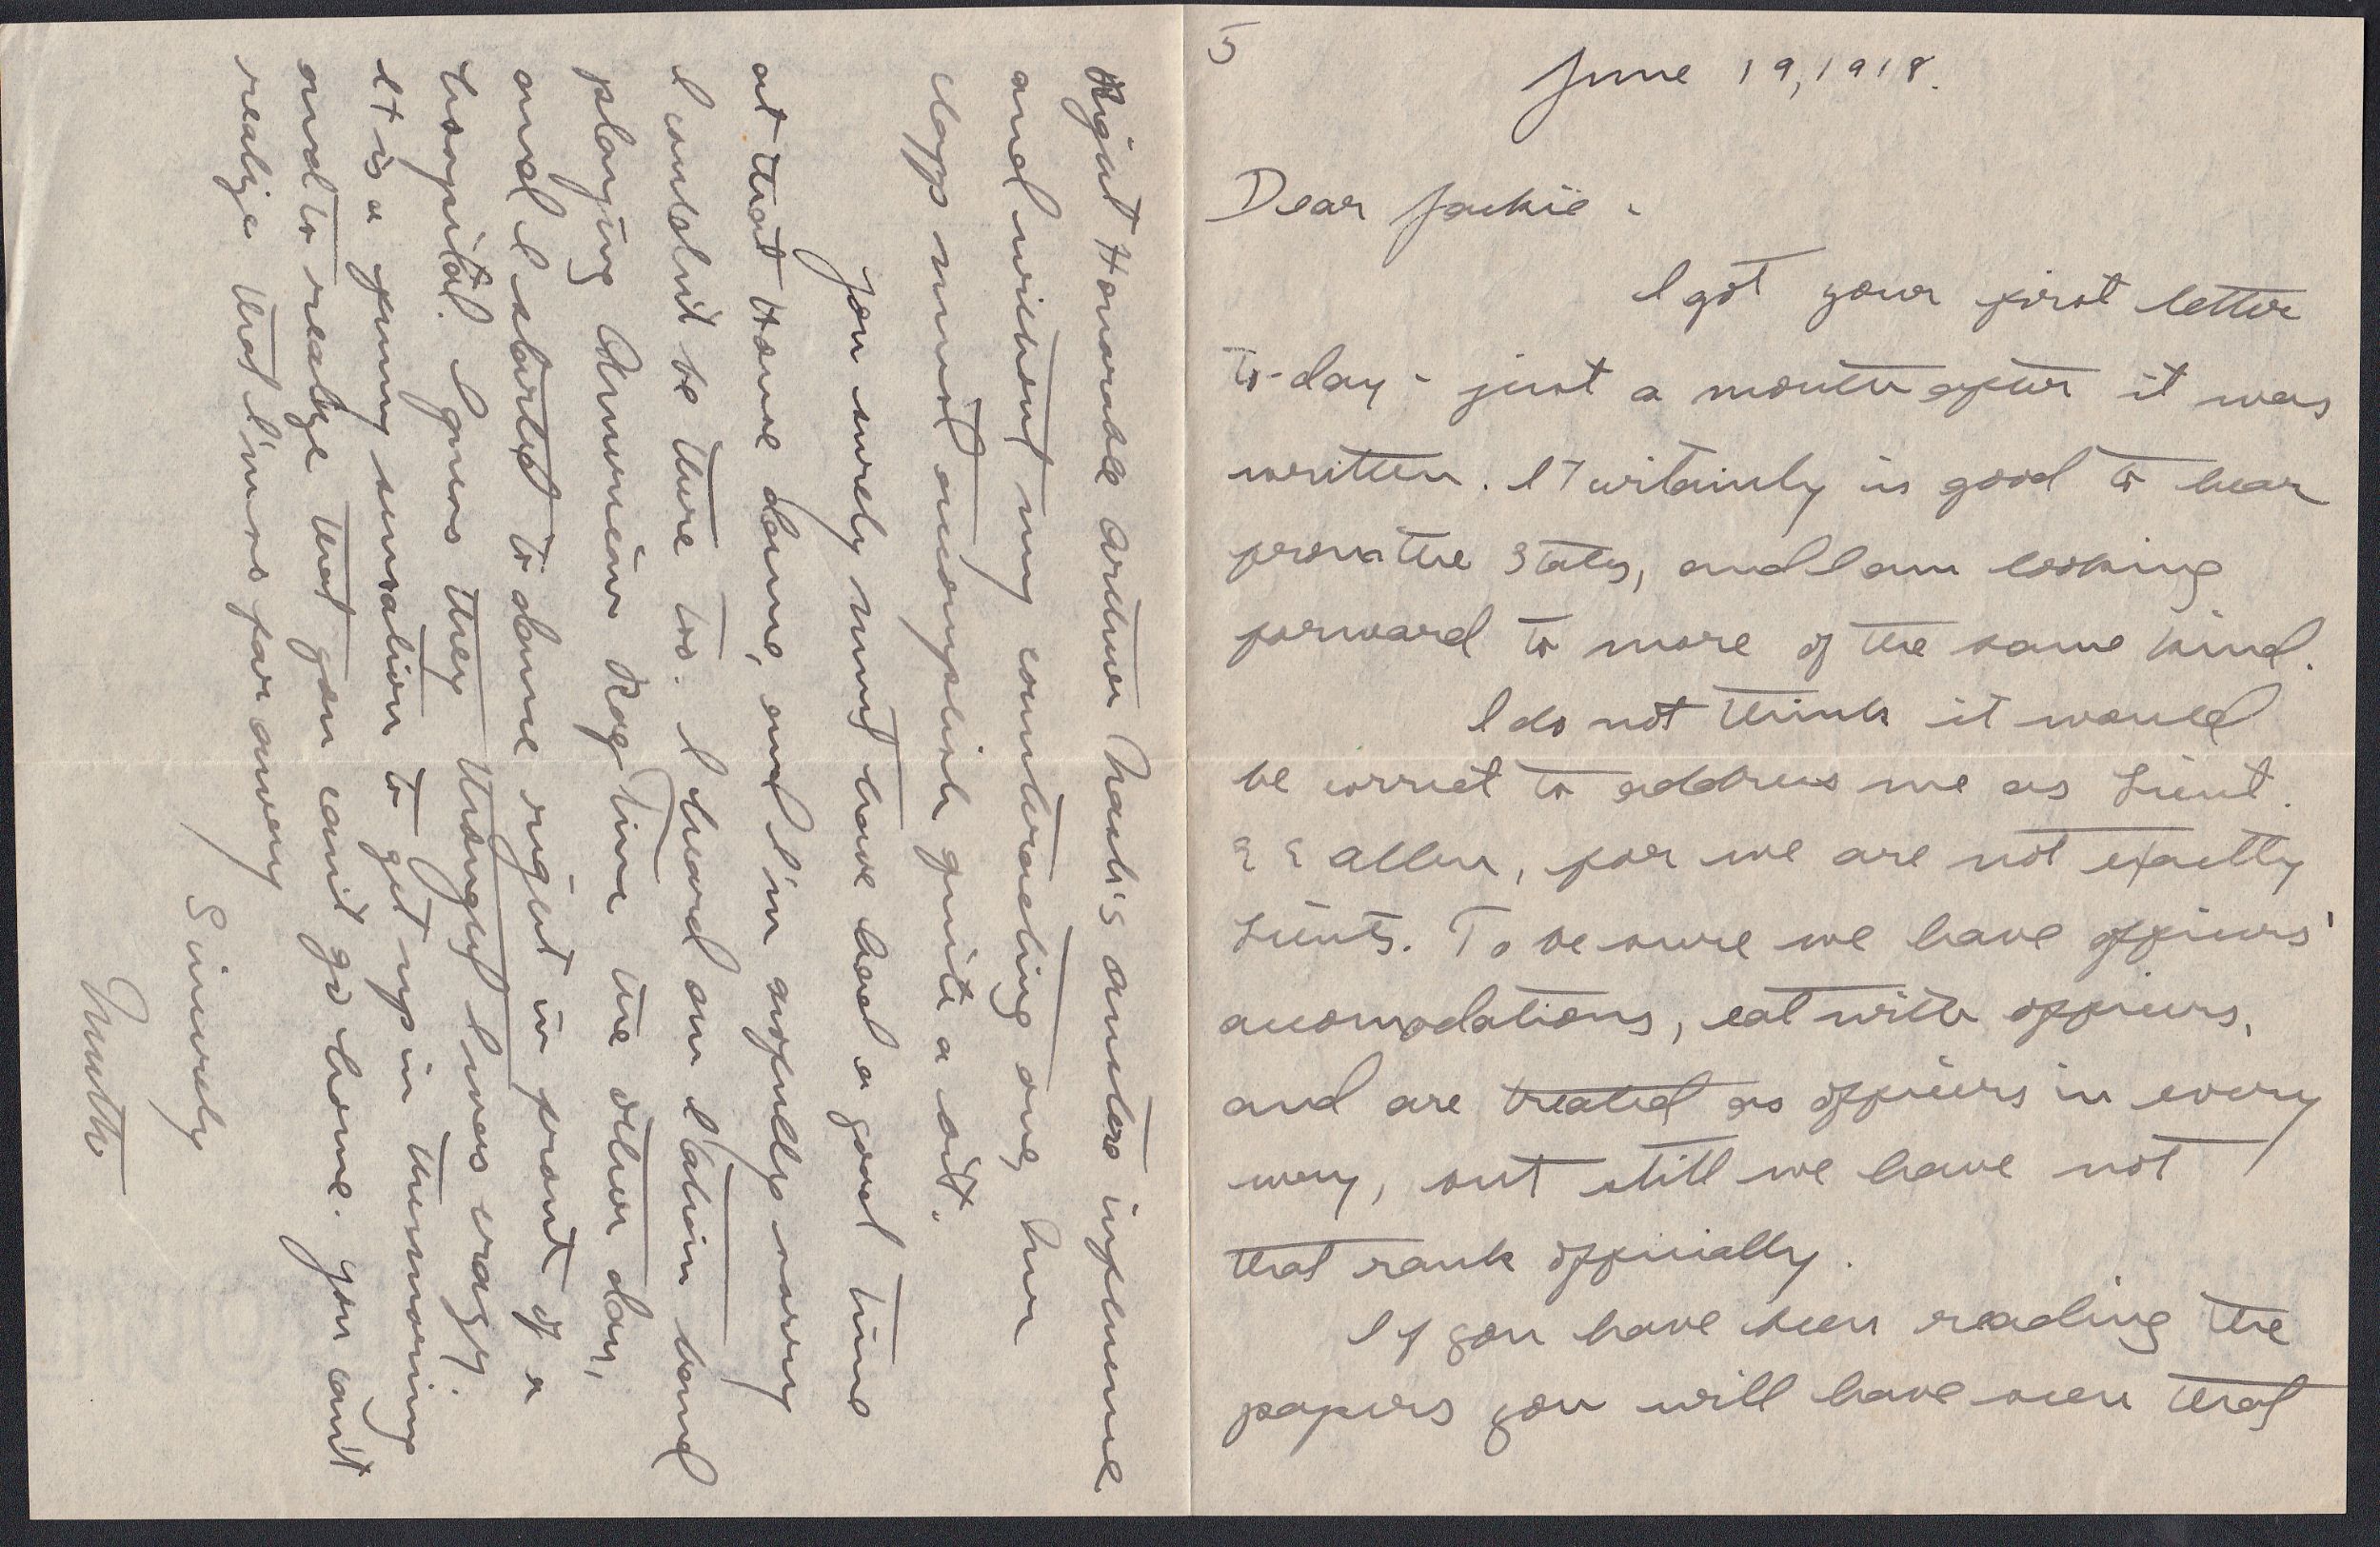 5
June 19, 1918.
Dear Jackie -
I got your first letter
to-day - just a month after it was
written. It certainly is good to hear
from the States, and I am looking
forward to more of the same kind.
I do not think it would
be correct to address me as Lieut.
E E Allen, for we are not exactly
Lieuts. To be sure we have officers'
accomodations, eat with officers,
and are treated as officers in every
way, but still we have not
that rank officially.
If you have been reading the
papers you will have seen that
Right Honorable Arthur Nash's influence
and without my counteracting one, Mew
Clapp must accomplish quite a bit.
You surely must have had a good time
at that House dance, and I'm awfully sorry
I couldn't be there too. I heard an Italian band
playing American Rag time the other day,
and I started to dance right in front of a
hospital. I guess they thought I was crazy.
It is a funny sensation to get up in the morning
and to realize that you can't go home. You can't
realize that I'm so far away
Sincerely